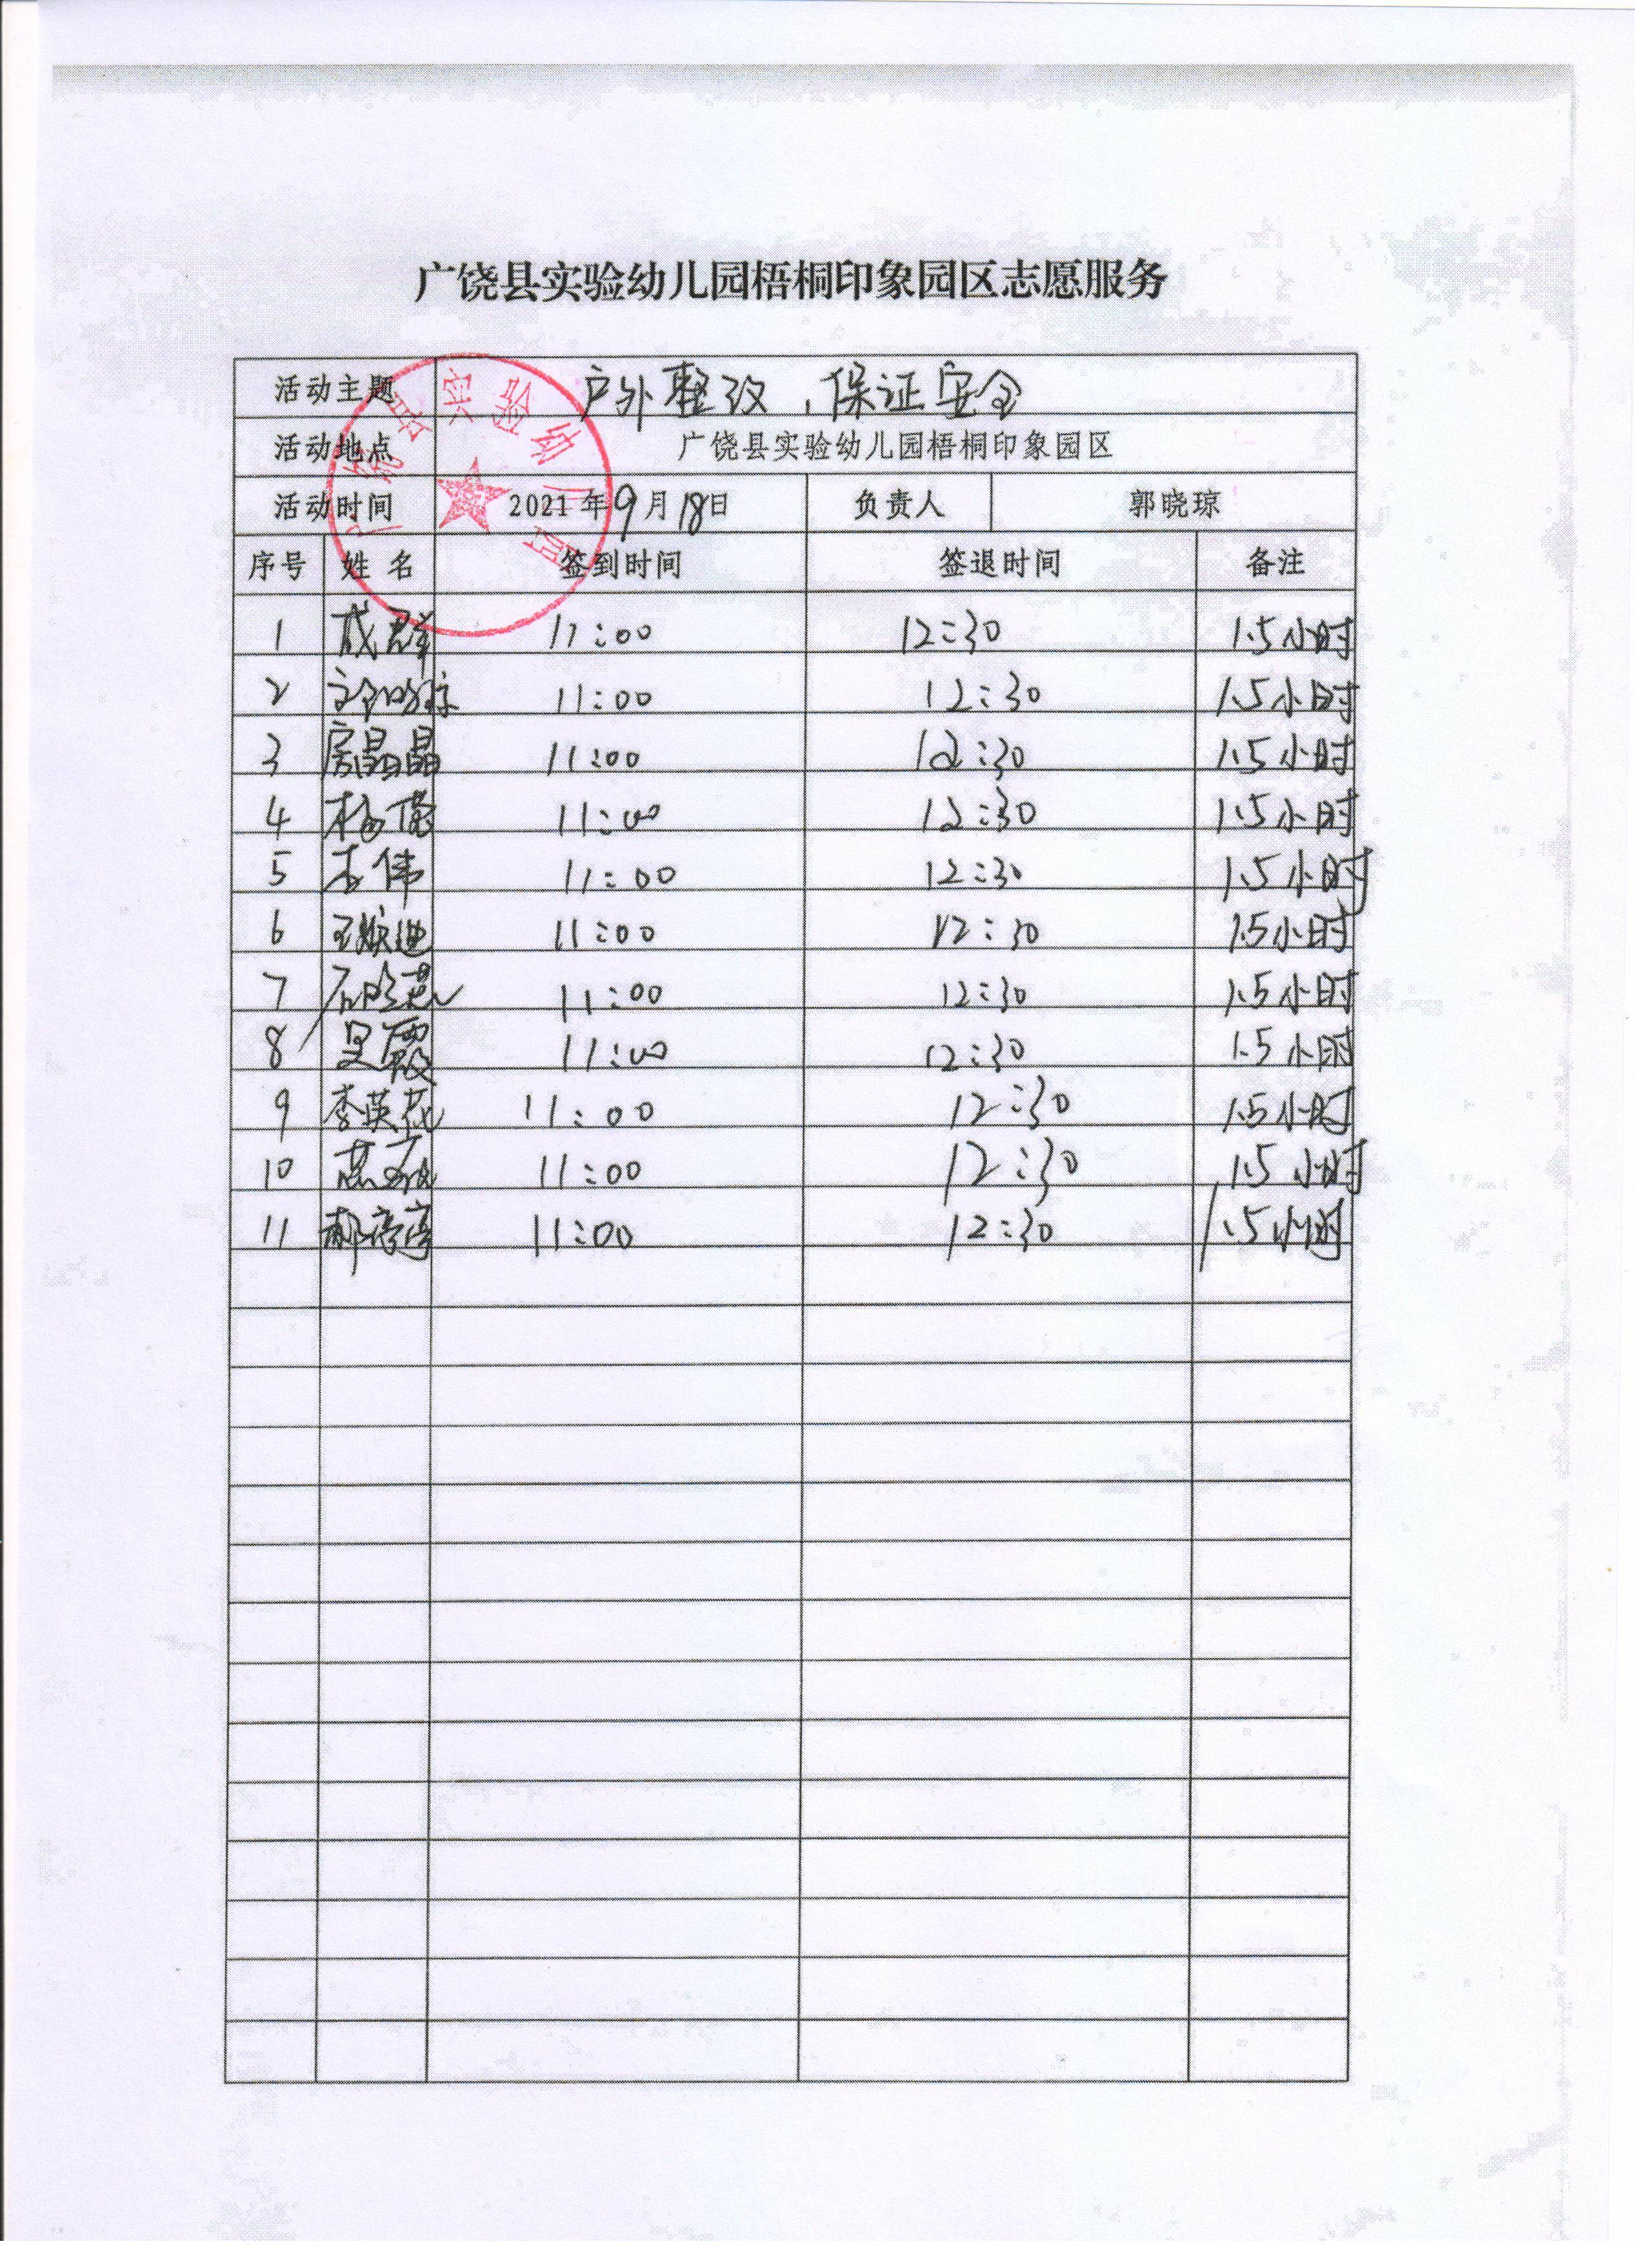 广饶县实验幼儿园梧桐印象园区志愿服务
活动主题 户外整改，保证安全
活动地点 广饶县实验幼儿园梧桐印象园区
活动时间 2021年9月18日 负责人 郭晓琼
序号 姓名 签到时间 签退时间 备注
1 成群 11:00 12:30 1.5小时
2 郭晓琼 11:00 12:30 1.5小时
3 房晶晶 11:00 12:30 1.5小时
4 杨倩 11:00 12:30 1.5小时
5 李伟 11:00 12:30 1.5小时
6 王 迪 11:00 12:30 1.5小时
7 石晓燕 11:00 12:30 1.5小时
8 吴霞 11:00 12:30 1.5小时
9 李英花 11:00 12:30 1.5小时
10 11:00 12:30 1.5小时
11 郝亭亭 11:00 12:30 1.5小时